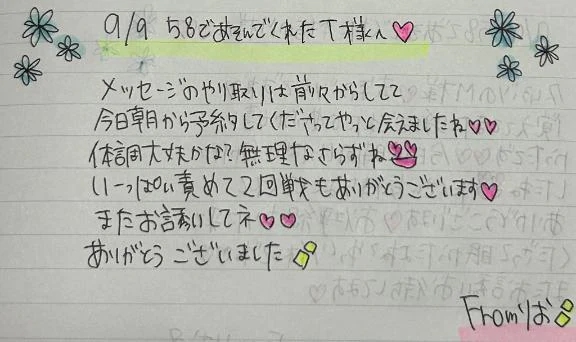 9/9 58であそんでくれたT様へ♡
メッセージのやり取りは前々からしてて
今日朝から予約してくださってやっと会えましたね♡♡
体調大丈夫かな?無理なさらずね♡♡
いーっぱい責めて2回戦もありがとうございます♡
またお誘いしてネ♡♡
ありがとうございました
Fromりお